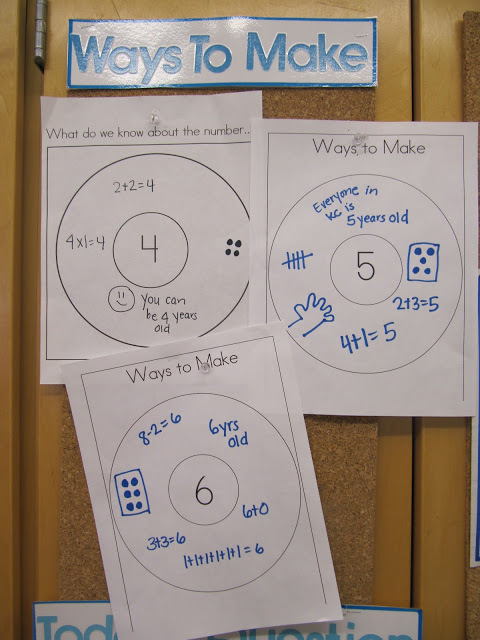 Ways To Make
What do we know about the number...
2+2=4
4x1=4
4
you can
be 4 years
old
Ways to Make
Everyone in
KC is
5 years old
5
2+3=5
4+1=5
Ways to Make
8-2=6
6yrs
old
6
6+0
3+3=6
1+1+1+1+1+1=6
Today's Question